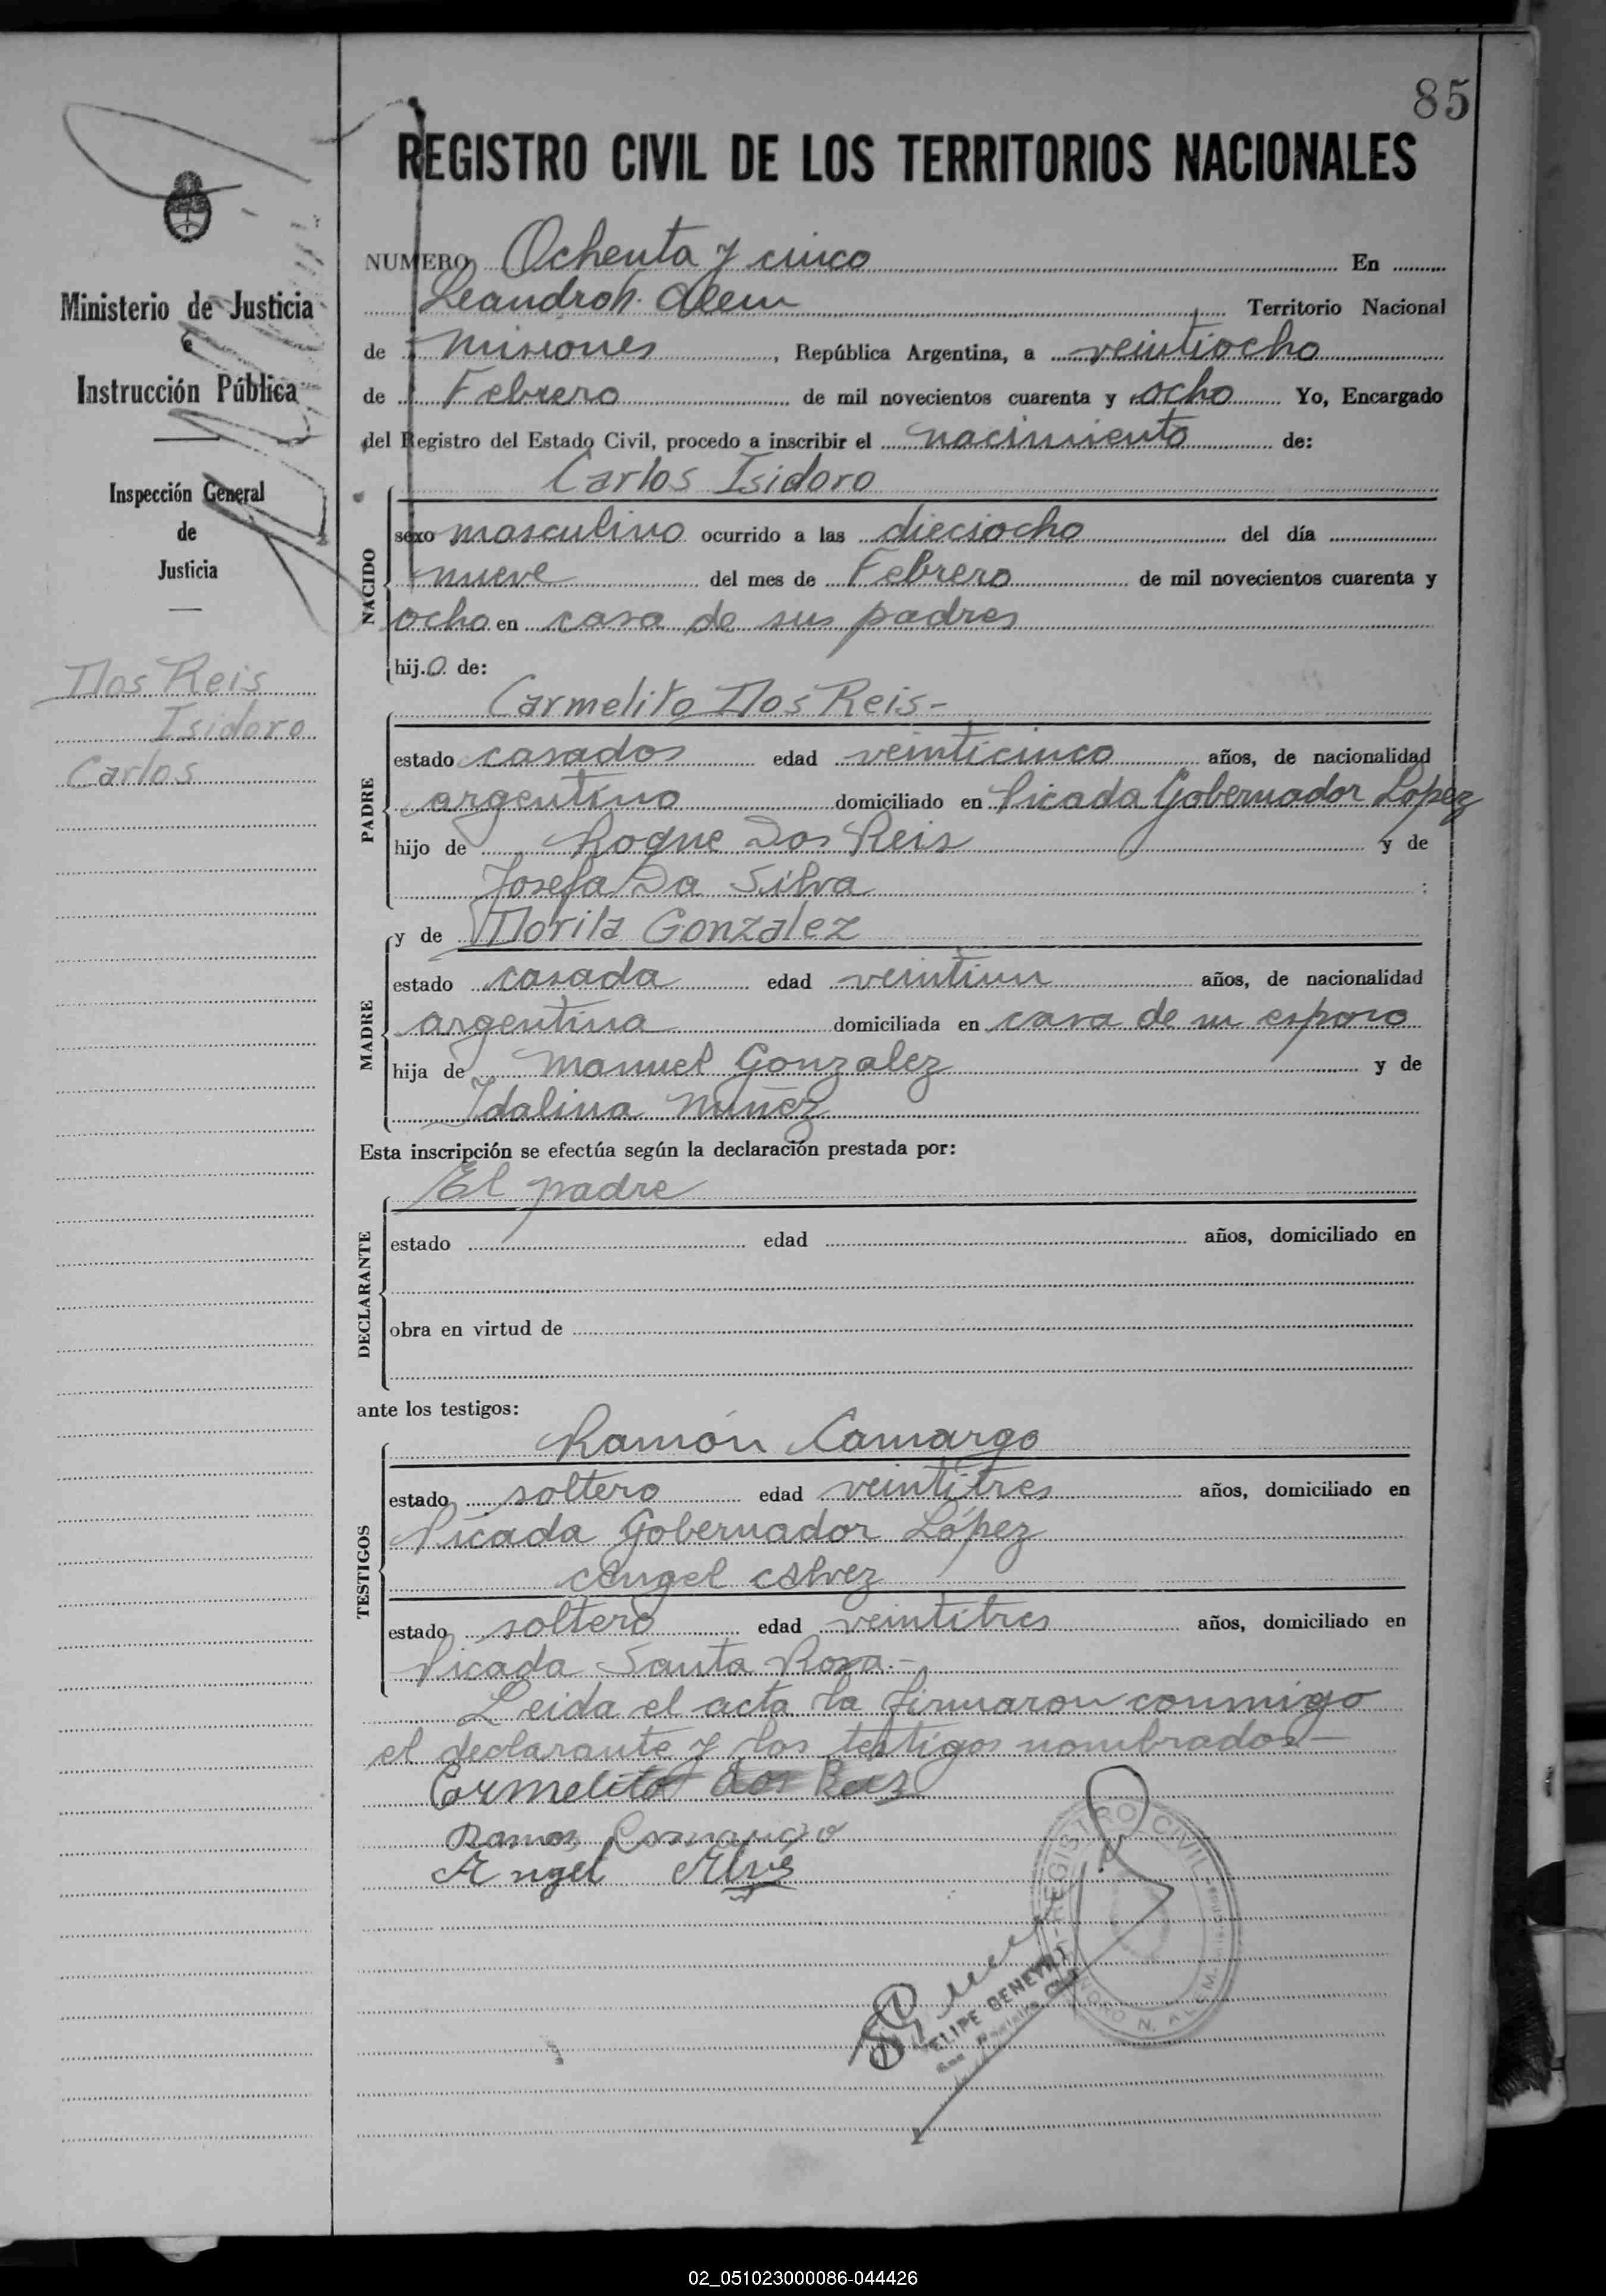 85
REGISTRO CIVIL DE LOS TERRITORIOS NACIONALES
Ministerio de Justicia
e
Instrucción Pública
Inspección General
de
Justicia
Dos Reis
Isidoro
Carlos
NUMERO Ochenta y cinco En
Leandro N. Alem Territorio Nacional
de Misiones, República Argentina, a veintiocho
de Febrero de mil novecientos cuarenta y ocho Yo, Encargado
del Registro del Estado Civil, procedo a inscribir el nacimiento de:
Carlos Isidoro
NACIDO
sexo masculino ocurrido a las dieciocho del día
nueve del mes de Febrero de mil novecientos cuarenta y
ocho en casa de sus padres
hijo de:
Carmelito Dos Reis-
PADRE
estado casados edad veinticinco años, de nacionalidad
argentino domiciliado en Picada Gobernador López
hijo de Roque Dos Reis y de
Josefa Da Silva ;
y de Dorila Gonzalez
MADRE
estado casada edad veintiun años, de nacionalidad
argentina domiciliada en casa de su esposo
hija de Manuel Gonzalez y de
Idalina Nuñez
Esta inscripción se efectúa según la declaración prestada por:
El padre
DECLARANTE
estado edad años, domiciliado en
obra en virtud de
ante los testigos:
Ramón Camargo
TESTIGOS
estado soltero edad veintitres años, domiciliado en
Picada Gobernador López
Angel Alvez
estado soltero edad veintitres años, domiciliado en
Picada Santa Rosa.-
Leida el acta la firmaron conmigo
el declarante y los testigos nombrados-
Carmelito dos Reis
Ramon Camargo
Angel
REGISTRO CIVIL
N. ALEM
FELIPE
02_051023000086-044426